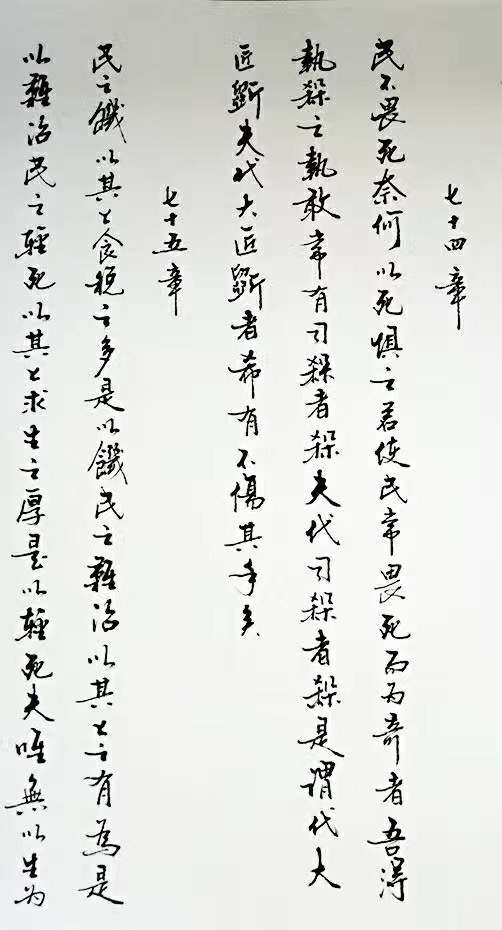 七十四章
民不畏死奈何以死惧之若使民常畏死而为奇者吾得
執殺之孰敢常有司殺者殺夫代司殺者殺是謂代大
匠斲夫代大匠斲者希有不傷其手矣
七十五章
民之饑以其上食税之多是以饑民之難治以其上之有為是
以難治民之輕死以其上求生之厚是以輕死夫唯無以生为